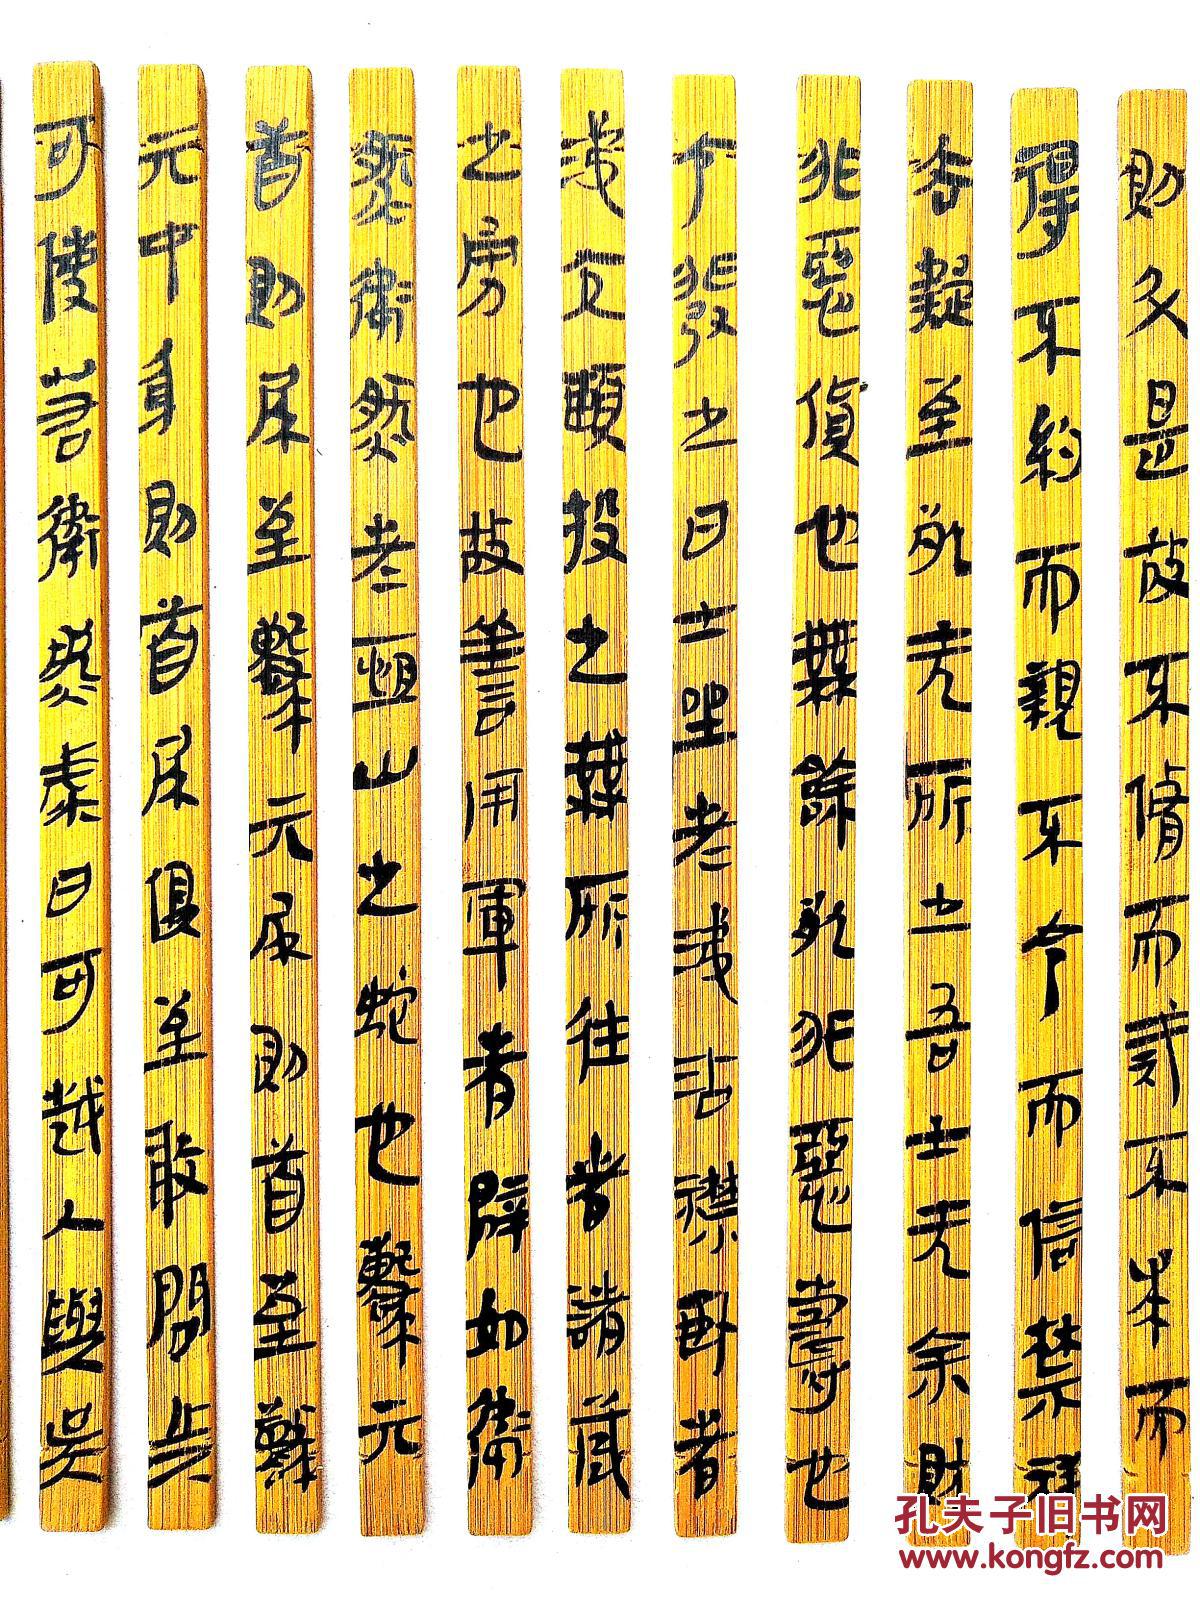 則夂是故不脩而戒不求而
得不約而親不令而信禁祥
去疑至死无所之吾士无余財
非惡貨也無餘死非惡壽也
令發之日士坐者涕沾襟臥者
涕交頤投之無所往者諸歲
之勇也故善用軍者辟如衛
然衛然者恒山之蛇也擊其
首則尾至擊其尾則首至擊
其中身則首尾俱至敢問兵
可使若衛然虖曰可越人與吳
孔夫子旧书网
www.kongfz.com